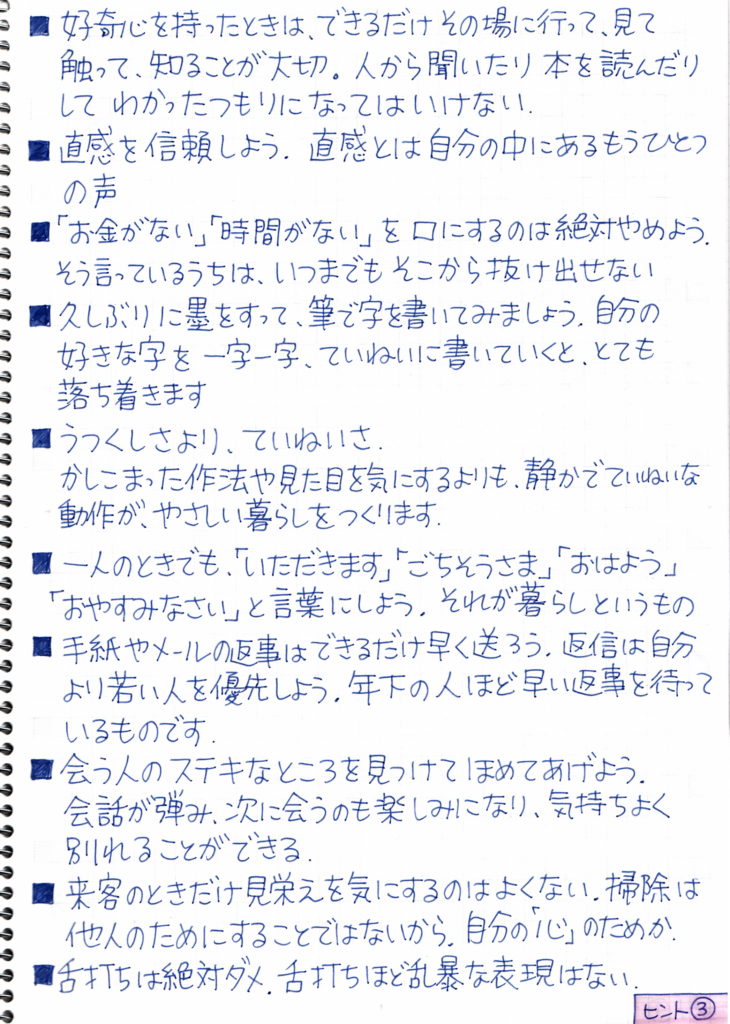 ■ 好奇心を持ったときは、できるだけその場に行って、見て
触って、知ることが大切。人から聞いたり本を読んだり
してわかったつもりになってはいけない.
■ 直感を信頼しよう. 直感とは自分の中にあるもうひとつ
の声
■ 「お金がない」「時間がない」を口にするのは絶対やめよう.
そう言っているうちは、いつまでもそこから抜け出せない
■ 久しぶりに墨をすって、筆で字を書いてみましょう. 自分の
好きな字を一字一字、ていねいに書いていくと、とても
落ち着きます
■ うつくしさより、ていねいさ.
かしこまった作法や見た目を気にするよりも、静かでていねいな
動作が、やさしい暮らしをつくります.
■ 一人のときでも、「いただきます」「ごちそうさま」「おはよう」
「おやすみなさい」と言葉にしよう. それが暮らしというもの
■ 手紙やメールの返事はできるだけ早く送ろう. 返信は自分
より若い人を優先しよう. 年下の人ほど早い返事を待って
いるものです.
■ 会う人のステキなところを見つけてほめてあげよう.
会話が弾み、次に会うのも楽しみになり、気持ちよく
別れることができる.
■ 来客のときだけ見栄えを気にするのはよくない. 掃除は
他人のためにすることではないから. 自分の「心」のためか.
■ 舌打ちは絶対ダメ. 舌打ちほど乱暴な表現はない.
ヒント③